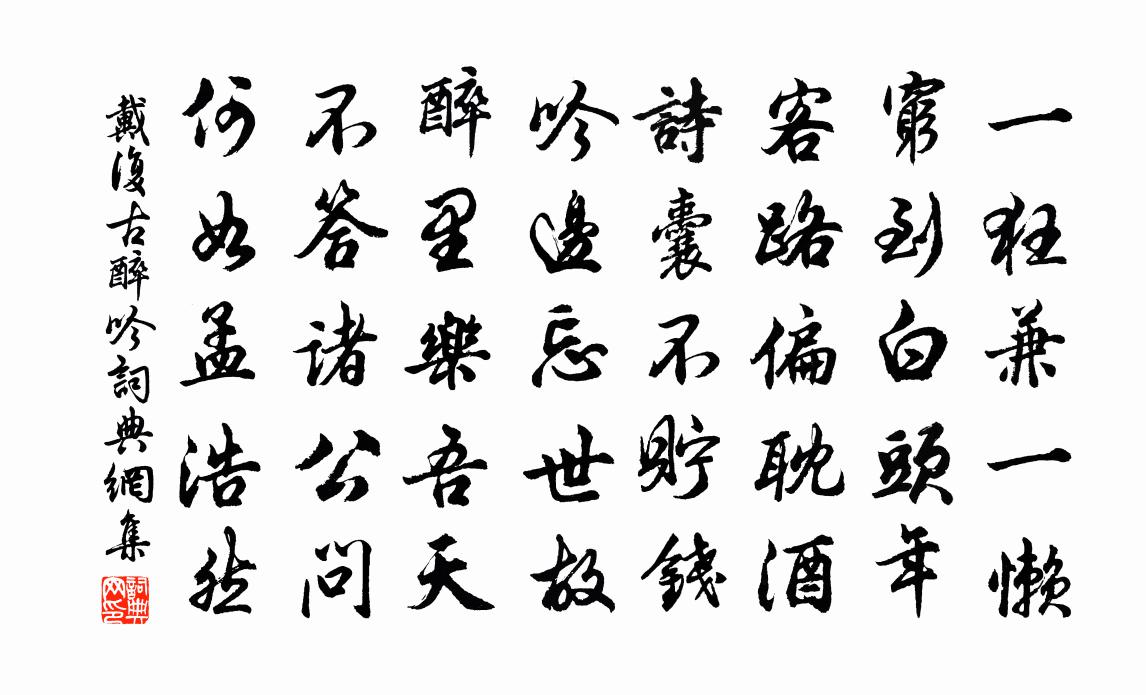 一狂兼一懶
窮到白頭年
客路偏耽酒
詩囊不貯錢
吟邊忘世故
醉里樂吾天
不答諸公問
何如孟浩然
戴復古醉吟詞典網集
詞典
网印